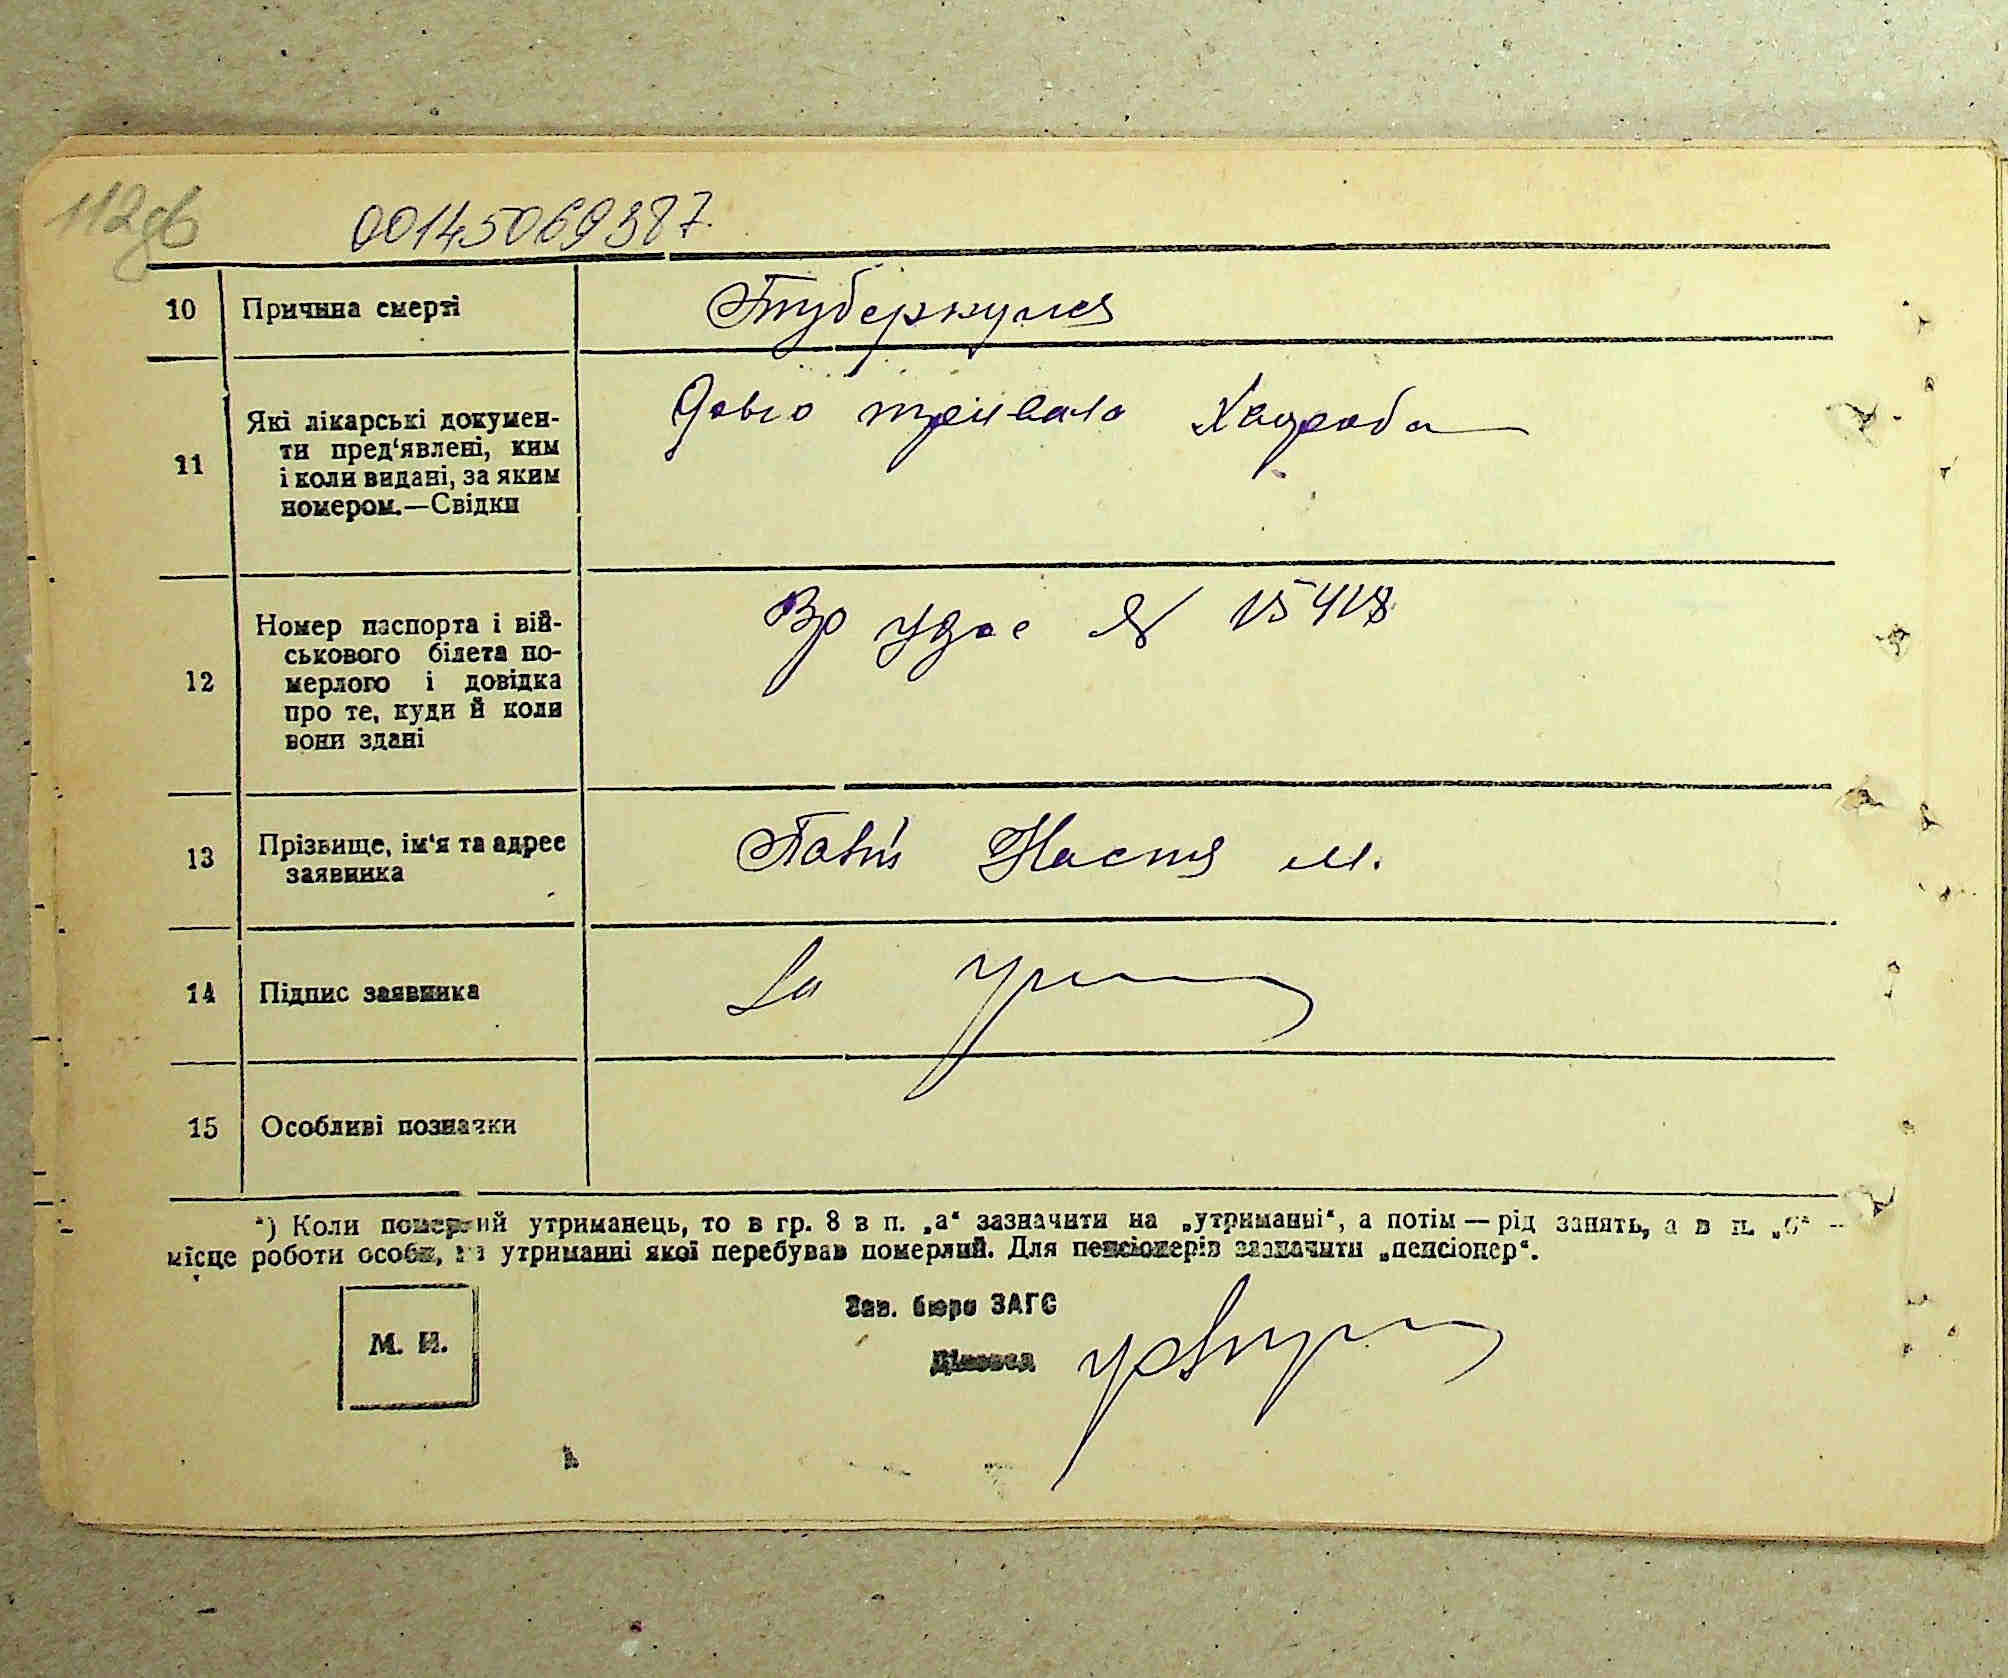 112зв
00145069387.
10 Причина смерті Туберкулез
11 Які лікарські докумен-
ти пред'явлені, ким
і коли видані, за яким
номером.—Свідки
Довго тривала Хвороба
12 Номер паспорта і вій-
ськового білета по-
мерлого і довідка
про те, куди й коли
вони здані
Вр удос № 15418
13 Прізвище, ім'я та адрес
заявника
Настя М.
14 Підпис заявника
За
15 Особливі позначки
*) Коли померлий утриманець, то в гр. 8 в п. „а“ зазначити на „утриманні“, а потім — рід занять, а в п. „б“ —
місце роботи особи, на утриманні якої перебував померлий. Для пенсіонерів зазначити „пенсіонер“.
М. П.
Зав. бюро ЗАГС
Діловод